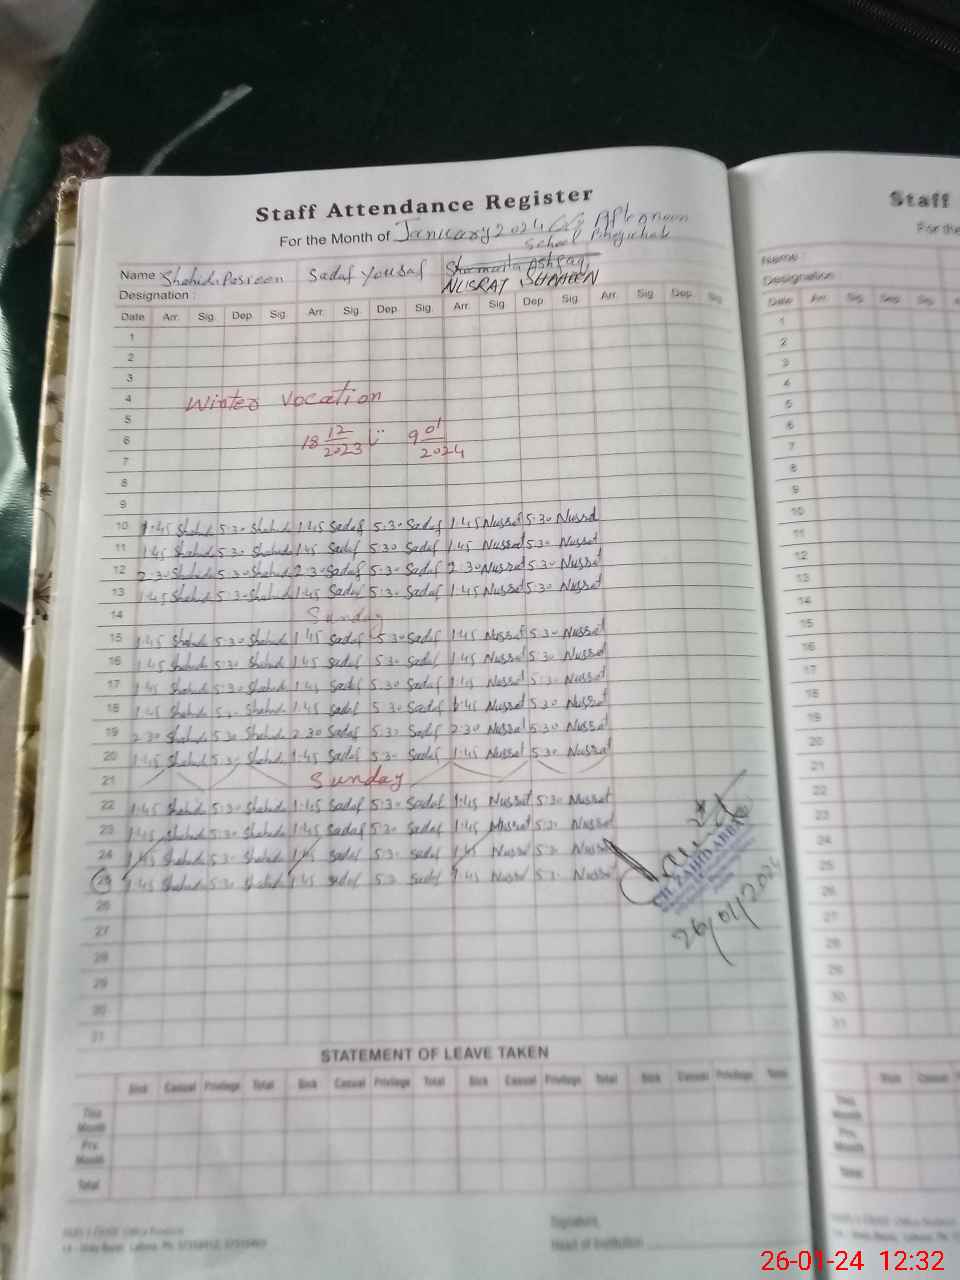 Staff Attendance Register
Staff
For the Month of January 2024 Afternoon
School
For the
Name : Shahida Sadaf Yousaf Shamaila Ashraf
NUSRAT SHAHEEN
Name :
Designation :
Designation
Date Arr. Sig. Dep. Sig. Arr. Sig. Dep. Sig. Arr. Sig. Dep. Sig. Arr. Sig. Dep. Sig.
Date Arr. Sig. Dep. Sig.
1
2
3
4 Winter Vocation
5
6 18 12/2023 9 01/2024
7
8
9
10 1:45 Shahid 5:30 Shahid 1:45 Sadaf 5:30 Sadaf 1:45 Nusrat 5:30 Nusrat
11 1:45 Shahid 5:30 Shahid 1:45 Sadaf 5:30 Sadaf 1:45 Nusrat 5:30 Nusrat
12 2:30 Shahid 5:30 Shahid 2:30 Sadaf 5:30 Sadaf 2:30 Nusrat 5:30 Nusrat
13 1:45 Shahid 5:30 Shahid 1:45 Sadaf 5:30 Sadaf 1:45 Nusrat 5:30 Nusrat
14 Sunday
15 1:45 Shahid 5:30 Shahid 1:45 Sadaf 5:30 Sadaf 1:45 Nusrat 5:30 Nusrat
16 1:45 Shahid 5:30 Shahid 1:45 Sadaf 5:30 Sadaf 1:45 Nusrat 5:30 Nusrat
17 1:45 Shahid 5:30 Shahid 1:45 Sadaf 5:30 Sadaf 1:45 Nusrat 5:30 Nusrat
18 1:45 Shahid 5:30 Shahid 1:45 Sadaf 5:30 Sadaf 1:45 Nusrat 5:30 Nusrat
19 2:30 Shahid 5:30 Shahid 2:30 Sadaf 5:30 Sadaf 2:30 Nusrat 5:30 Nusrat
20 1:45 Shahid 5:30 Shahid 1:45 Sadaf 5:30 Sadaf 1:45 Nusrat 5:30 Nusrat
21 Sunday
22 1:45 Shahid 5:30 Shahid 1:45 Sadaf 5:30 Sadaf 1:45 Nusrat 5:30 Nusrat
23 1:45 Shahid 5:30 Shahid 1:45 Sadaf 5:30 Sadaf 1:45 Nusrat 5:30 Nusrat
24 1:45 Shahid 5:30 Shahid 1:45 Sadaf 5:30 Sadaf 1:45 Nusrat 5:30 Nusrat
25 1:45 Shahid 5:30 Shahid 1:45 Sadaf 5:30 Sadaf 1:45 Nusrat 5:30 Nusrat
CH. ZAHID ABBAS
26/01/2024
26
27
28
29
30
31
1
2
3
4
5
6
7
8
9
10
11
12
13
14
15
16
17
18
19
20
21
22
23
24
25
26
27
28
29
30
31
STATEMENT OF LEAVE TAKEN
Sick Casual Privilege Total Sick Casual Privilege Total Sick Casual Privilege Total Sick Casual Privilege Total
Sick Casual
This Month
Prv. Month
Total
This Month
Prv. Month
Total
Signature
Head of Institution
26-01-24 12:32